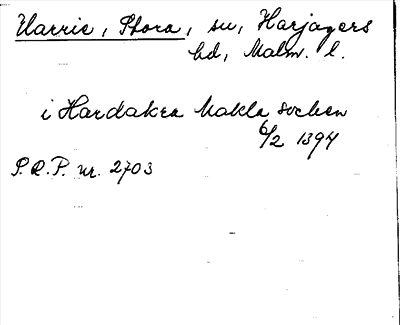 Harrie, Stora, sn, Harjagers
hd, Malm. l.
i Hardakra Makla socken
6/2 1394
S.R.P. nr. 2703